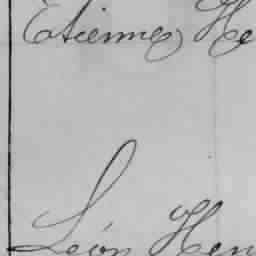 Etienne He
Léon Hen